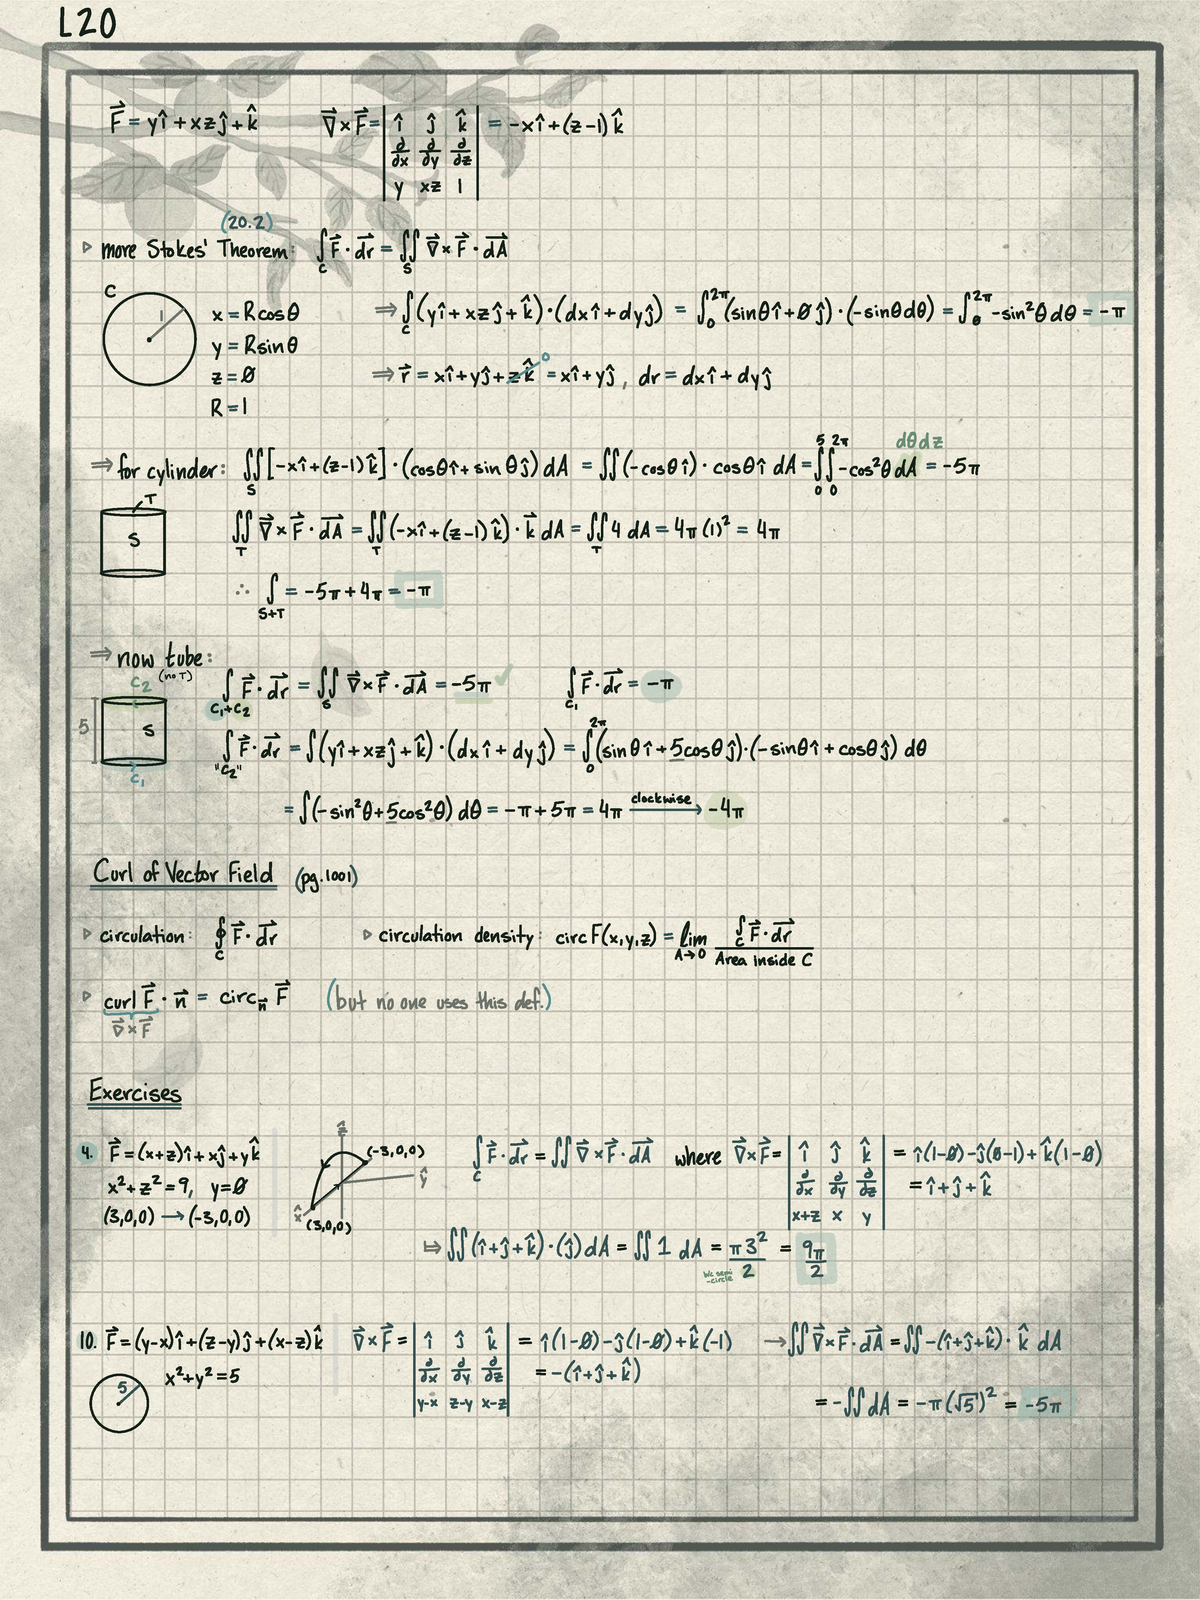 L20
F⃗ = yî + xzĵ + k̂    ∇⃗×F⃗ = | î ĵ k̂ | = -xî + (z-1)k̂
∂/∂x ∂/∂y ∂/∂z
y xz 1
(20.2)
▷ more Stokes' Theorem: ∫_C F⃗·dr⃗ = ∬_S ∇⃗×F⃗·dA⃗
C
1
x = Rcosθ    ⇒ ∫_C (yî + xzĵ + k̂)·(dxî + dyĵ) = ∫_0^2π (sinθî + Øĵ)·(-sinθdθ) = ∫_0^2π -sin²θ dθ = -π
y = Rsinθ
z = Ø    ⇒ r⃗ = xî + yĵ + zk̂ 0 = xî + yĵ, dr = dxî + dyĵ
R = 1
⇒ for cylinder: ∬_S [-xî + (z-1)k̂]·(cosθî + sinθĵ) dA = ∬(-cosθî)·cosθî dA = ∫_0^5 ∫_0^2π -cos²θ dA = -5π
dθdz
T
S
∬_T ∇⃗×F⃗·dA⃗ = ∬_T (-xî + (z-1)k̂)·k⃗ dA = ∬_T 4 dA = 4π(1)² = 4π
∴ ∫_S+T = -5π + 4π = -π
⇒ now tube:
(no T)
C₂
5
S
C₁
∫_C₁+C₂ F⃗·dr⃗ = ∬_S ∇⃗×F⃗·dA⃗ = -5π ✓    ∫_C₁ F⃗·dr⃗ = -π
∫_"C₂" F⃗·dr⃗ = ∫(yî + xzĵ + k̂)·(dxî + dyĵ) = ∫_0^2π (sinθî + 5cosθĵ)·(-sinθî + cosθĵ) dθ
= ∫(-sin²θ + 5cos²θ) dθ = -π + 5π = 4π clockwise → -4π
Curl of Vector Field (pg.1001)
▷ circulation: ∮_C F⃗·dr⃗    ▷ circulation density: circF(x,y,z) = lim_A→0 ∫_C F⃗·dr⃗ / Area inside C
▷ curl F⃗·n⃗ = circ_n⃗ F⃗ (but no one uses this def.)
∇⃗×F⃗
Exercises
4. F⃗ = (x+z)î + xĵ + yk̂
x²+z²=9, y=Ø
(3,0,0) → (-3,0,0)
ẑ
(-3,0,0)
ŷ
x̂
(3,0,0)
∫_C F⃗·dr⃗ = ∬ ∇⃗×F⃗·dA⃗ where ∇⃗×F⃗ = | î ĵ k̂ | = î(1-Ø) - ĵ(Ø-1) + k̂(1-Ø)
∂/∂x ∂/∂y ∂/∂z = î + ĵ + k̂
x+z x y
↦ ∬(î+ĵ+k̂)·(ĵ) dA = ∬ 1 dA = π3²/2 = 9π/2
b/c semi
-circle
10. F⃗ = (y-x)î + (z-y)ĵ + (x-z)k̂    ∇⃗×F⃗ = | î ĵ k̂ | = î(1-Ø) - ĵ(1-Ø) + k̂(-1)    → ∬ ∇⃗×F⃗·dA⃗ = ∬ -(î+ĵ+k̂)·k̂ dA
x²+y²=5
5
∂/∂x ∂/∂y ∂/∂z = -(î+ĵ+k̂)
y-x z-y x-z
= -∬ dA = -π(√5)² = -5π